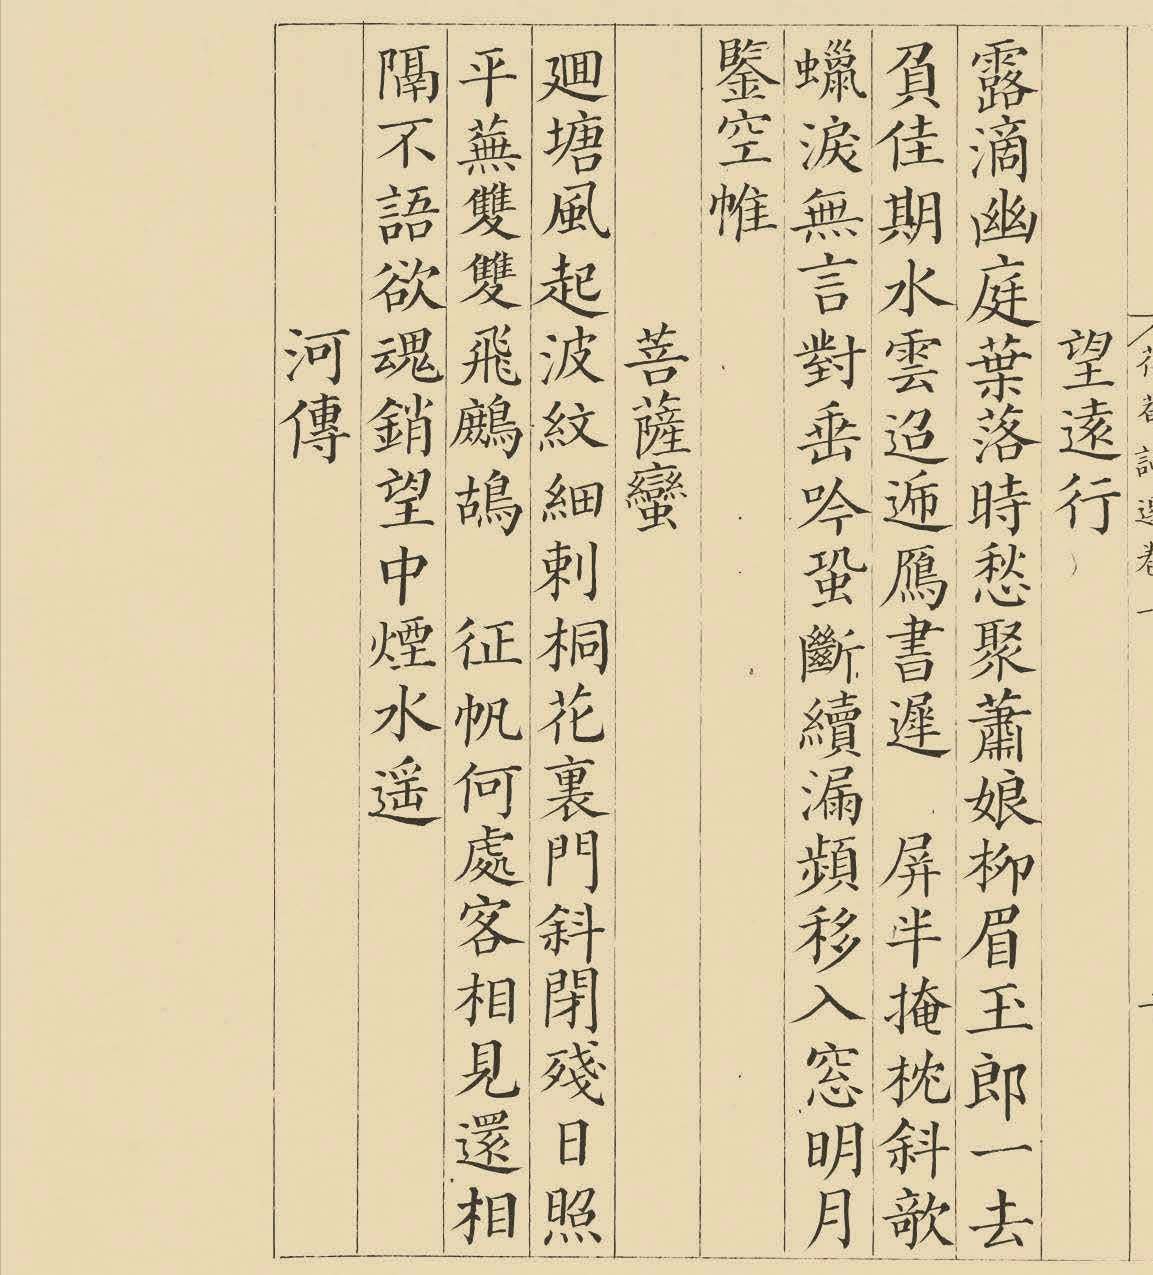 花菴詞選卷一
望遠行
露滴幽庭葉落時愁聚蕭娘柳眉玉郎一去
負佳期水雲迢遞鴈書遲　屏半掩枕斜欹
蠟淚無言對垂吟蛩斷續漏頻移入窓明月
鑒空帷
菩薩蠻
廽塘風起波紋細刺桐花裏門斜閉殘日照
平蕪雙雙飛鷓鴣　征帆何處客相見還相
隔不語欲魂銷望中煙水遥
河傳